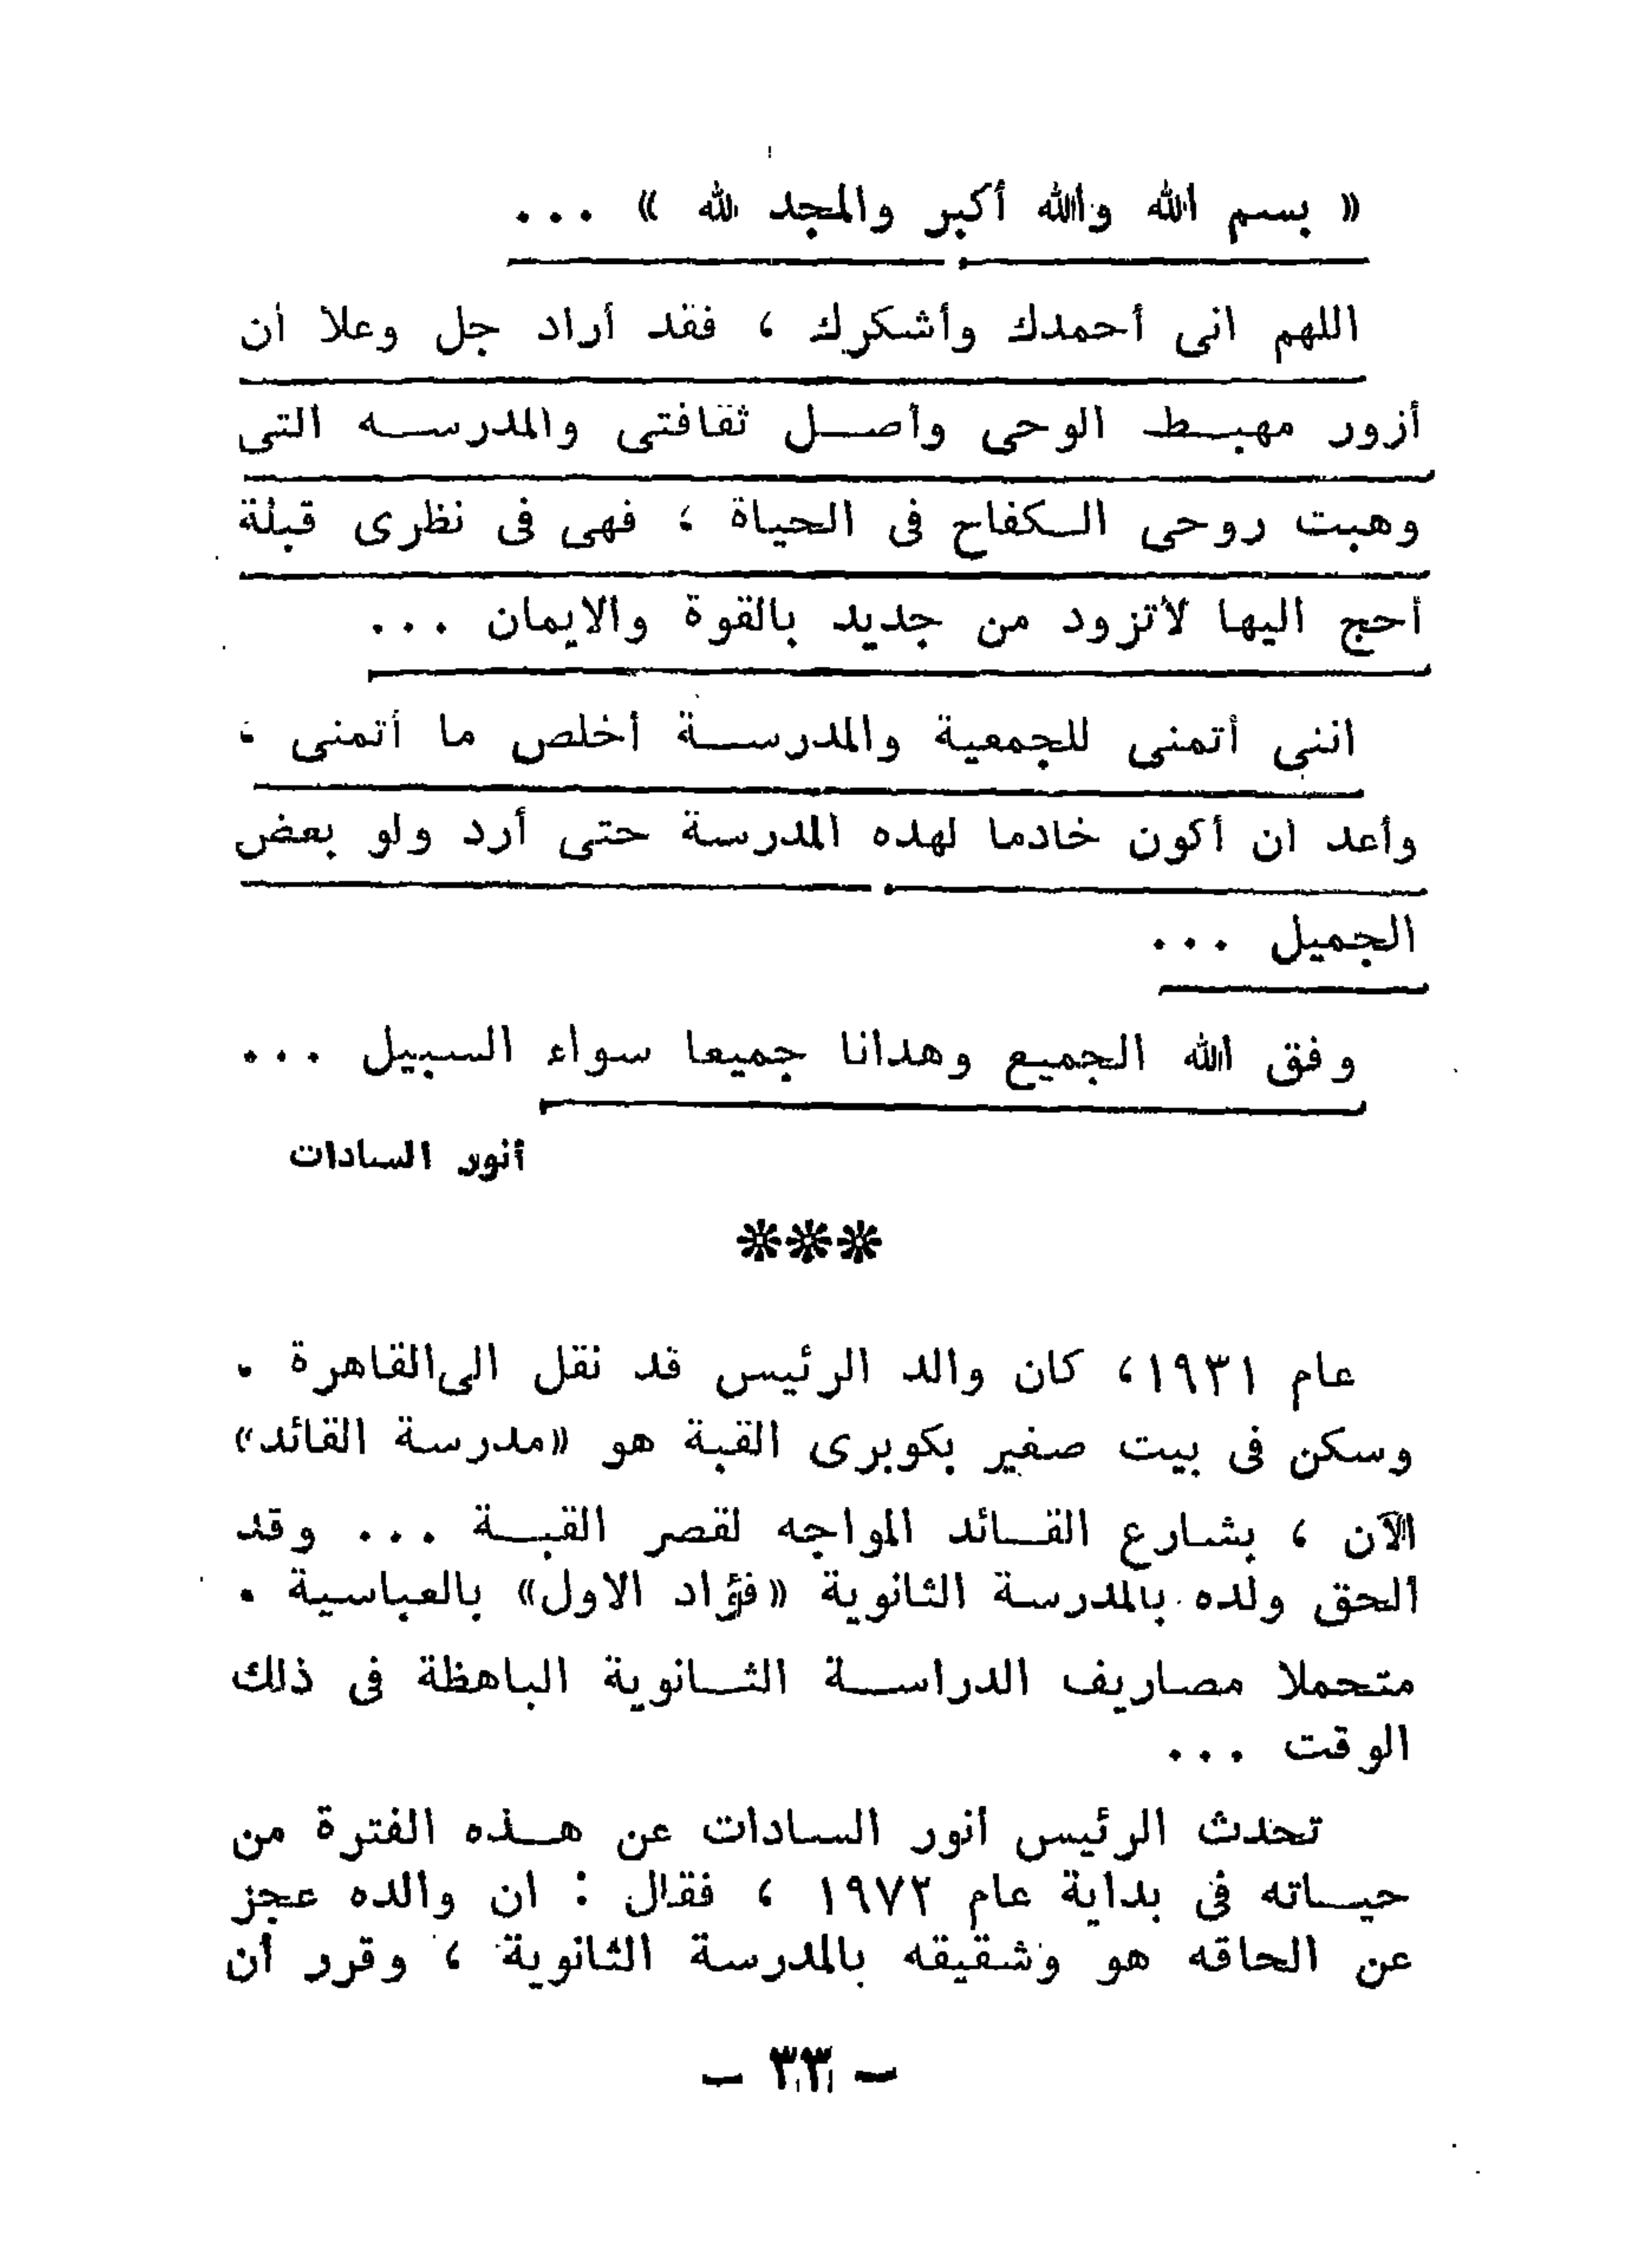 « بسم الله والله أكبر والمجد لله » ...
اللهم انى أحمدك وأشكرك ، فقد أراد جل وعلا أن
أزور مهبط الوحى وأصل ثقافتى والمدرسه التى
وهبت روحى الكفاح فى الحياة ، فهى فى نظرى قبلة
أحج اليها لأتزود من جديد بالقوة والايمان ...
اننى أتمنى للجمعية والمدرسة أخلص ما أتمنى ،
وأعد ان أكون خادما لهده المدرسة حتى أرد ولو بعض
الجميل ...
وفق الله الجميع وهدانا جميعا سواء السبيل ...
أنور السادات
***
عام ١٩٣١، كان والد الرئيس قد نقل الى القاهرة .
وسكن فى بيت صغير بكوبرى القبة هو «مدرسة القائد»
الآن ، بشارع القائد المواجه لقصر القبة ... وقد
الحق ولده بالمدرسة الثانوية «فؤاد الاول» بالعباسية .
متحملا مصاريف الدراسة الثانوية الباهظة فى ذلك
الوقت ...
تحدث الرئيس أنور السادات عن هذه الفترة من
حياته فى بداية عام ١٩٧٢ ، فقال : ان والده عجز
عن الحاقه هو وشقيقه بالمدرسة الثانوية ، وقرر أن
- ٣٣ -